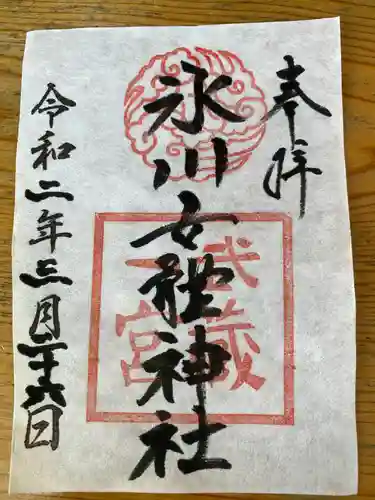 奉拝
氷川女體神社
武蔵
一宮
令和二年三月二十六日